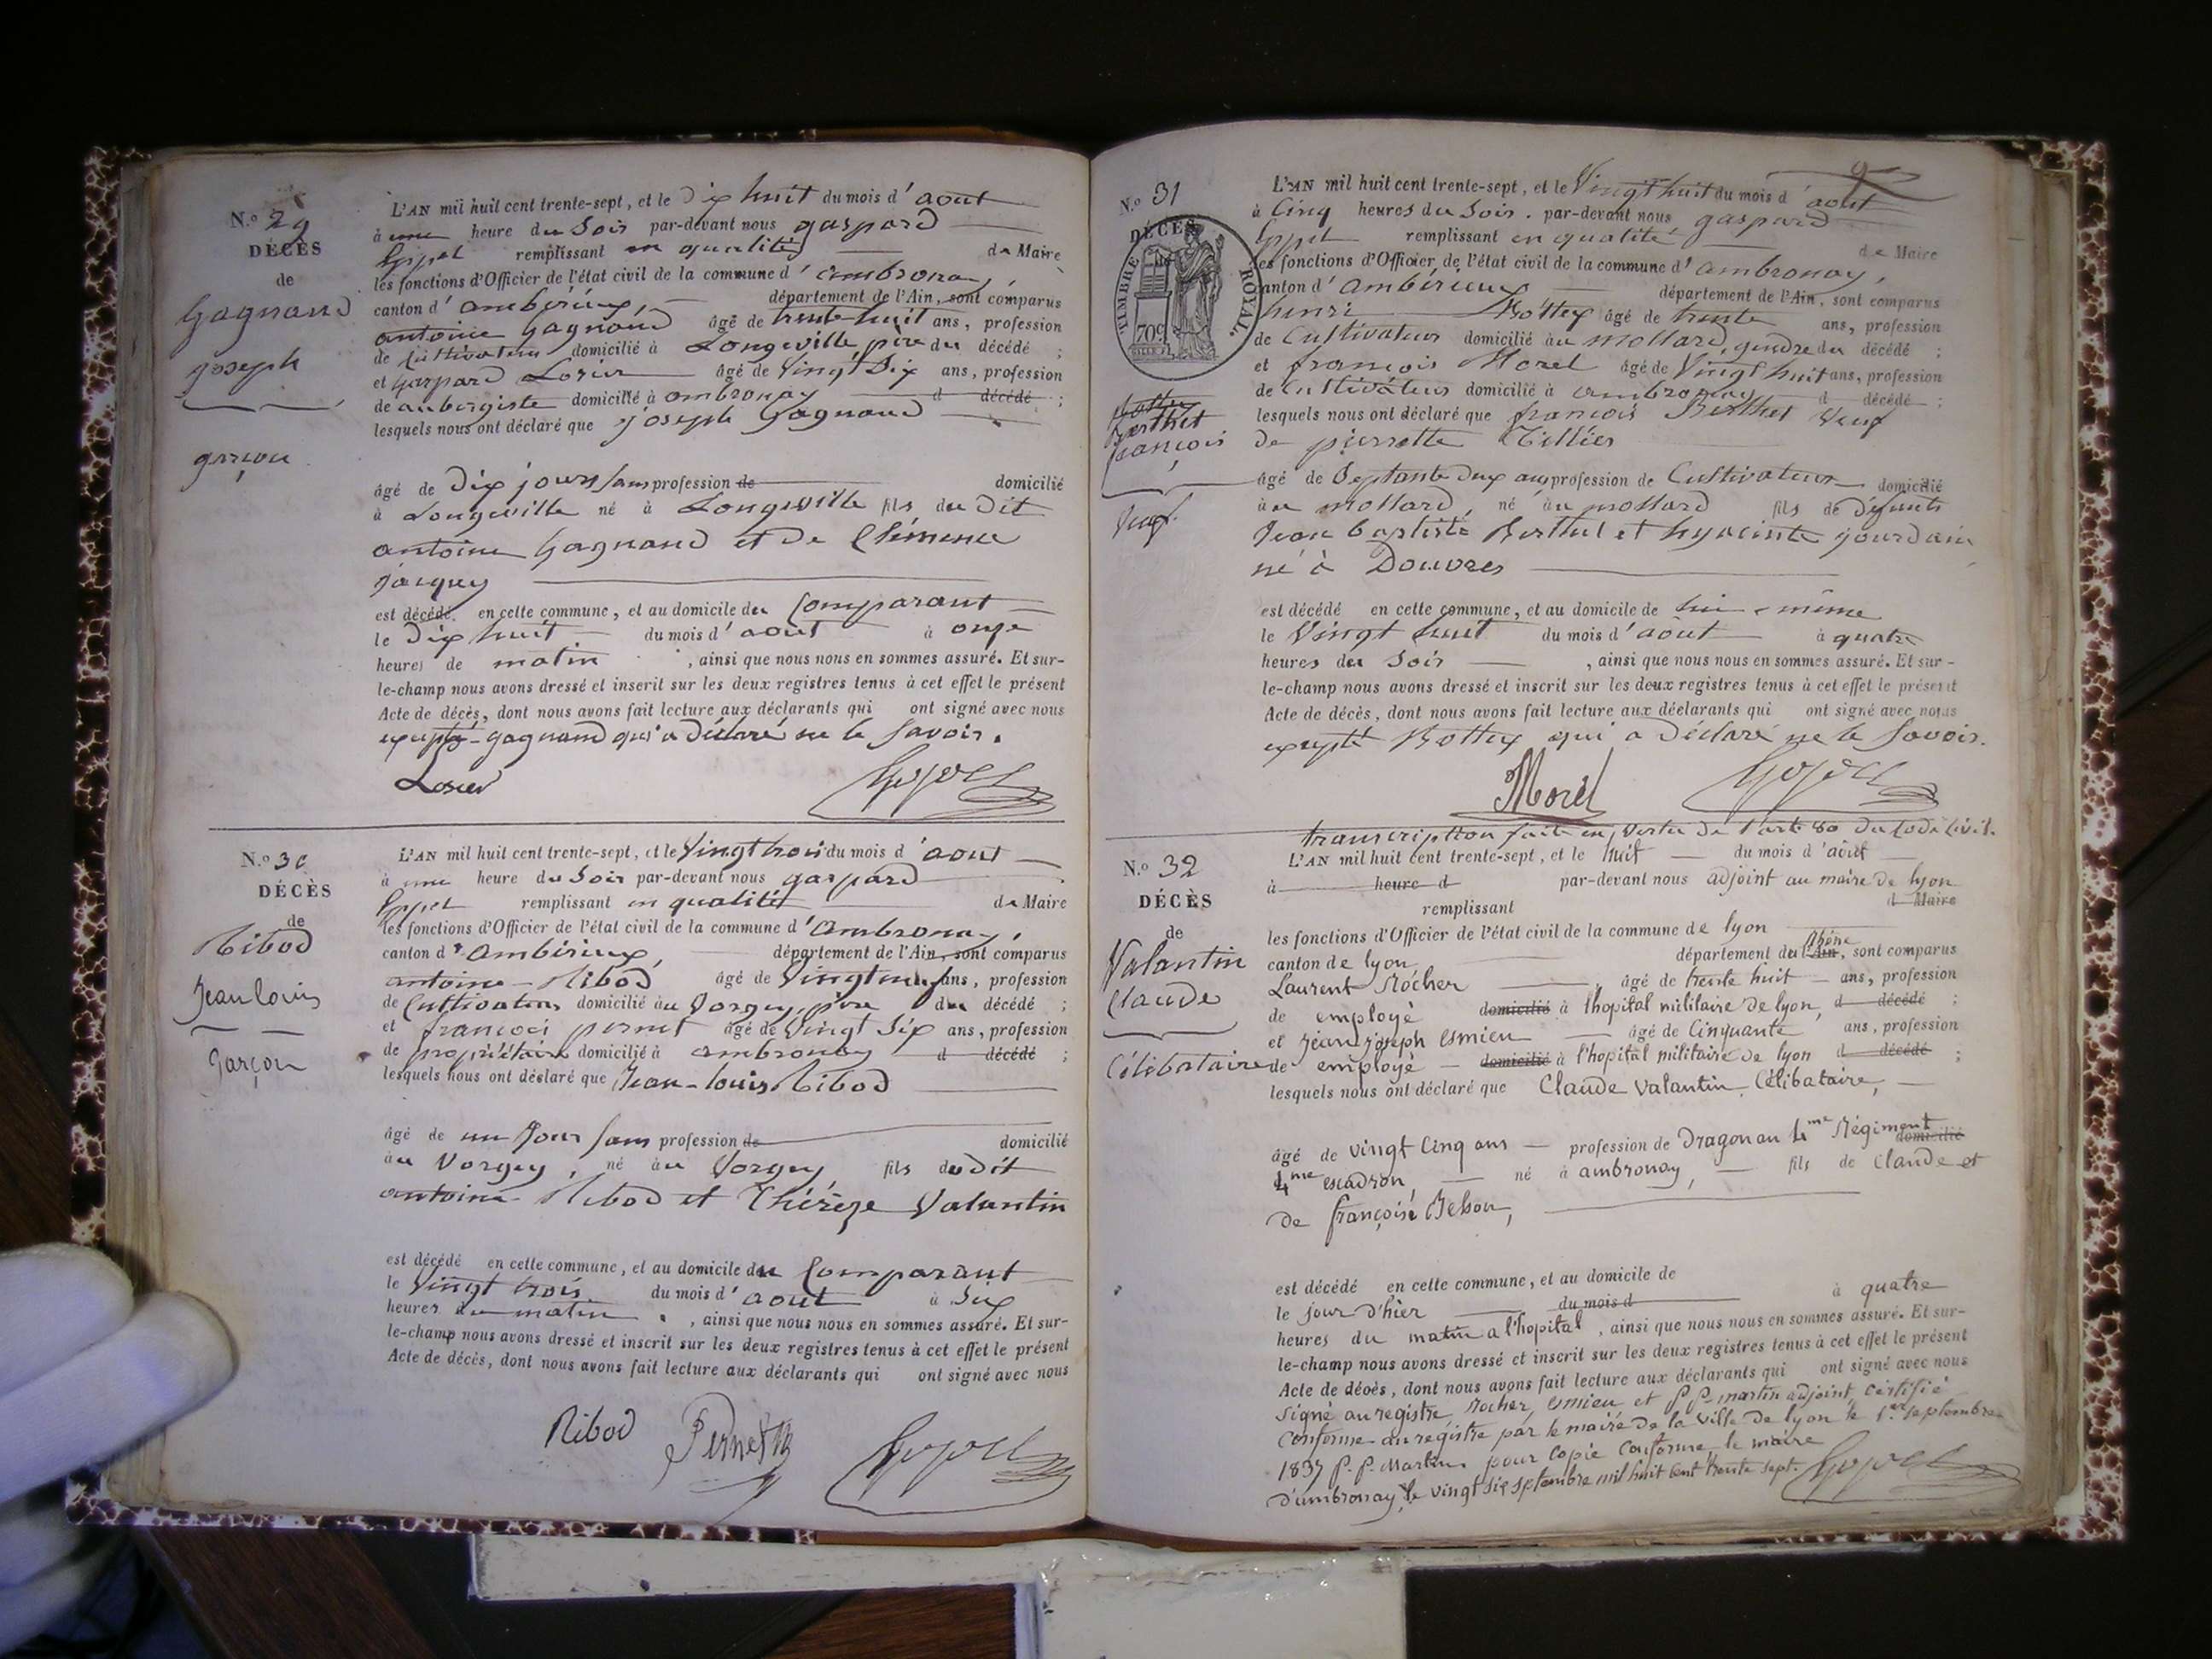 N.º 29
DÉCÈS
de
Gagnand
joseph
garçon
L'AN mil huit cent trente-sept, et le Dix huit du mois d'aout
à une heure du Soir par-devant nous gaspard
remplissant en qualité de Maire
les fonctions d'Officier de l'état civil de la commune d'ambronay,
canton d'ambérieux, département de l'Ain, sont comparus
antoine Gagnand âgé de trente-huit ans, profession
de Cultivateur domicilié à Longeville père du décédé ;
et Gaspard Losier âgé de Vingt Six ans, profession
de aubergiste domicilié à ambronay d décédé ;
lesquels nous ont déclaré que joseph Gagnand
âgé de Dix jours sans profession de domicilié
à Longeville né à Longeville fils du Dit
antoine Gagnand et De Clémence
jacquey
est décédé en cette commune, et au domicile du Comparant
le Dix huit du mois d'aout à onze
heures de matin, ainsi que nous nous en sommes assuré. Et sur-
le-champ nous avons dressé et inscrit sur les deux registres tenus à cet effet le présent
Acte de décès, dont nous avons fait lecture aux déclarants qui ont signé avec nous
excepté gagnand qui a Déclaré ne le Savoir.
Losier
N.º 30
DÉCÈS
de
Ribod
Jean louis
Garçon
L'AN mil huit cent trente-sept, et le Vingt trois du mois d'aout
à une heure du Soir par-devant nous gaspard
remplissant en qualité de Maire
les fonctions d'Officier de l'état civil de la commune d'Ambronay,
canton d'Ambérieux, département de l'Ain, sont comparus
antoine Ribod âgé de Vingt neuf ans, profession
de Cultivateur domicilié au Vorgey, père du décédé ;
et françois pernet âgé de Vingt Six ans, profession
de propriétaire domicilié à ambronay d décédé ;
lesquels nous ont déclaré que Jean-louis Ribod
âgé de un Jour Sans profession de domicilié
au Vorgey, né au Vorgey fils dudit
antoine Ribod et Thérèze Valantin
est décédé en cette commune, et au domicile du Comparant
le Vingt trois du mois d'aout à Six
heures du matin, ainsi que nous nous en sommes assuré. Et sur-
le-champ nous avons dressé et inscrit sur les deux registres tenus à cet effet le présent
Acte de décès, dont nous avons fait lecture aux déclarants qui ont signé avec nous
Ribod Pernet
N.º 31
DÉCÈS
TIMBRE ROYAL.
70c
Berthet
françois
Veuf.
L'AN mil huit cent trente-sept, et le Vingt huit du mois d'aout
à Cinq heures du Soir. par-devant nous gaspard
remplissant en qualité de Maire
les fonctions d'Officier de l'état civil de la commune d'ambronay,
canton d'Ambérieux département de l'Ain, sont comparus
henri Bottex âgé de trente ans, profession
de Cultivateur domicilié au mollard, gendre du décédé ;
et françois Morel âgé de Vingt huit ans, profession
de Cultivateur domicilié à ambronay d décédé ;
lesquels nous ont déclaré que françois Berthet Veuf
de pierrette Tillier
âgé de Septante Deux ans profession de Cultivateur domicilié
au mollard, né au mollard fils de Défunts
Jean baptiste Berthet et hyacinte jourdain
né à Douvres
est décédé en cette commune, et au domicile de lui-même
le Vingt huit du mois d'aout à quatre
heures du Soir, ainsi que nous nous en sommes assuré. Et sur-
le-champ nous avons dressé et inscrit sur les deux registres tenus à cet effet le présent
Acte de décès, dont nous avons fait lecture aux déclarants qui ont signé avec nous
excepté Bottex qui a Déclaré ne le Savoir.
Morel
transcription faite en Vertu de l'art. 80 du Code Civil.
N.º 32
DÉCÈS
de
Valantin
Claude
Célibataire
L'AN mil huit cent trente-sept, et le huit du mois d'août
à heure d par-devant nous adjoint au maire de lyon
remplissant d Maire
les fonctions d'Officier de l'état civil de la commune de lyon
canton de lyon département du l'Ain Rhône, sont comparus
Laurent Rocher, âgé de trente huit ans, profession
de employé domicilié à l'hopital militaire de lyon, d décédé ;
et jean joseph Esmieu âgé de Cinquante ans, profession
de employé domicilié à l'hopital militaire de lyon d décédé ;
lesquels nous ont déclaré que Claude Valantin, Célibataire,
âgé de vingt Cinq ans profession de Dragon au 4me Régiment domicilié
4me escadron, né à ambronay, fils de Claude et
de françoise Bebou,
est décédé en cette commune, et au domicile de
le jour d'hier du mois d à quatre
heures du matin a l'hopital, ainsi que nous nous en sommes assuré. Et sur-
le-champ nous avons dressé et inscrit sur les deux registres tenus à cet effet le présent
Acte de décès, dont nous avons fait lecture aux déclarants qui ont signé avec nous
Signé au registre, Rocher, Esmieu et P. P. martin adjoint, certifié
Conforme au registre par le maire de la ville de lyon le 1.er septembre
1837 P. P. Martin, pour copie Conforme le maire
d'ambronay, le vingt six septembre mil huit cent trente sept.